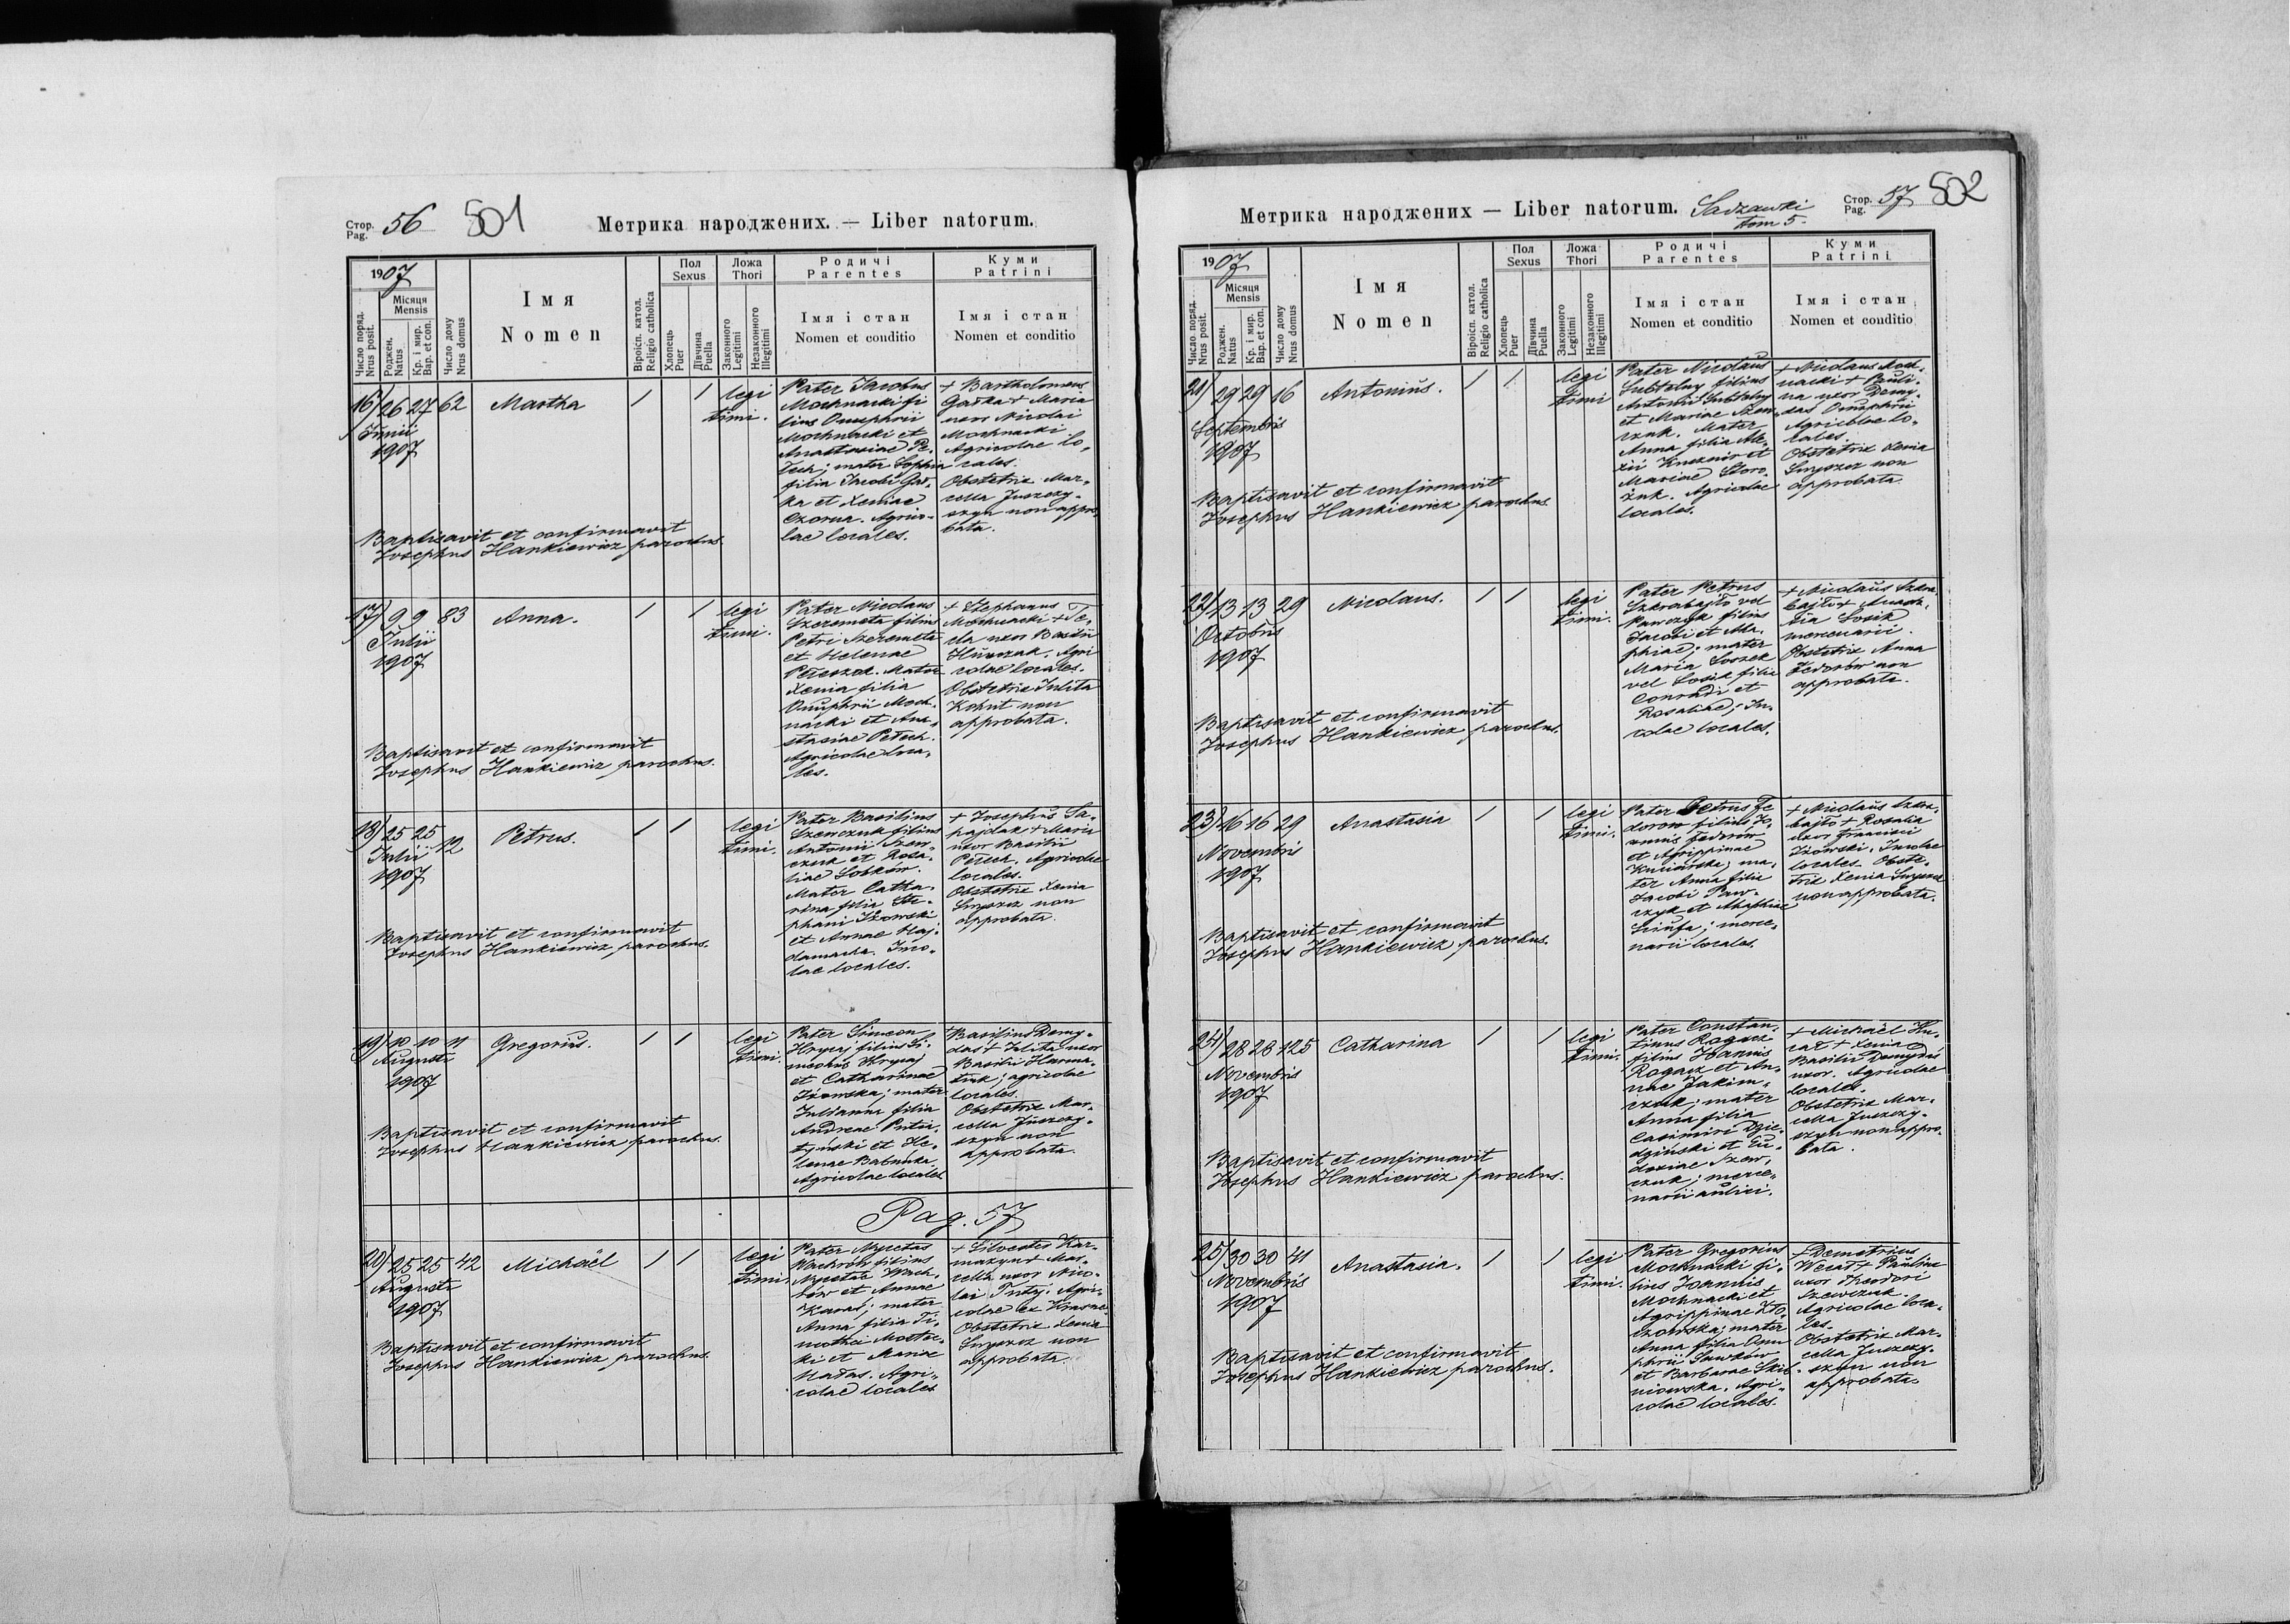 Стор.
Pag. 56 501
Метрика народжених. — Liber natorum.
1907
Число поряд.
Nrus posit.
Місяця
Mensis
Роджен.
Natus
Кр. і мир.
Bap. et con.
Число дому
Nrus domus
Імя
Nomen
Віроісп. катол.
Religio catholica
Пол
Sexus
Хлопець
Puer
Дівчина
Puella
Ложа
Thori
Законного
Legitimi
Незаконного
Illegitimi
Родичі
Parentes
Імя і стан
Nomen et conditio
Куми
Patrini
Імя і стан
Nomen et conditio
16) 26 27 62 Martha / / legi
timi.
Junii
1907
Pater Jacobus
Mochnacki fi
lius Onuphrii
Mochnacki et
Anastasiae Pe-
tech; mater Sophia
filia Jacobi Gał-
ka et Xeniae
Czorna. Agrico-
lae locales.
+ Bartholomeus
Gałka + Maria
uxor Nicolai
Mochnacki
Agricolae lo-
cales.
Obstetrix Mar-
cella Juszczy-
szyn non appro-
bata.
Baptisavit et confirmavit
Josephus Hankiewicz parochus.
17) 9 9 83 Anna. / / legi
timi.
Julii
1907
Pater Nicolaus
Szeremeta filius
Petri Szeremeta
et Helenae
Mater
Xenia filia
Onuphrii Moch-
nacki et Ana-
stasiae Petech.
Agricolae loca-
les.
+ Stephanus
Mochnacki + Te-
cla uxor Basilii
Agri
colae locales.
Obstetrix Julita
Kohut non
approbata.
Baptisavit et confirmavit
Josephus Hankiewicz parochus.
18) 25 25 12 Petrus. / / legi
timi.
Julii
1907
Pater Basilius
Szewczuk filius
Antonii Szew-
czuk et Rosa-
liae Sobków.
Mater Catha-
rina filia Ste-
phani Iżowski
et Annae Haj-
damacha. Inco-
lae locales.
+ Josephus Sa-
hajdak + Maria
uxor Basilii
Petech. Agricolae
locales.
Obstetrix Xenia
non
approbata.
Baptisavit et confirmavit
Josephus Hankiewicz parochus.
19) 10 10 11 Gregorius. / / legi
timi.
Augusti
1907
Pater Simeon
Hrycaj filius Si-
meonis Hrycaj
et Catharinae
Iżowska; mater
Julianna filia
Andreae
et He-
lenae
Agricolae locales
+ Basilius Demy-
das + Julita uxor
Basilii
agricolae
locales.
Obstetrix Mar-
cella Juszczy-
szyn non
approbata.
Baptisavit et confirmavit
Josephus Hankiewicz parochus.
Pag. 57
20) 25 25 42 Michaël / / legi
timi.
Augusti
1907
Pater Nycetas
Wachrów filius
Nycetae Wach-
rów et Annae
Karas; mater
Anna filia Ti-
mothei
et Mariae
Agri-
colae locales
+ Silvester Kar-
mazyn + Mar-
cella uxor Nico-
lai Agri-
colae ex
Obstetrix Xenia
non
approbata.
Baptisavit et confirmavit
Josephus Hankiewicz parochus.
Метрика народжених — Liber natorum. Sadzawki
tom 5.
Стор.
Pag. 57 502
1907
Число поряд.
Nrus posit.
Місяця
Mensis
Роджен.
Natus
Кр. і мир.
Bap. et con.
Число дому
Nrus domus
Імя
Nomen
Віроісп. катол.
Religio catholica
Пол
Sexus
Хлопець
Puer
Дівчина
Puella
Ложа
Thori
Законного
Legitimi
Незаконного
Illegitimi
Родичі
Parentes
Імя і стан
Nomen et conditio
Куми
Patrini
Імя і стан
Nomen et conditio
21) 29 29 16 Antonius. / / legi
timi
Septembris
1907
Pater Nicolaus
Subtelny filius
Antonii Subtelny
et Mariae Szew-
czuk. Mater
Anna filia Ale-
xii et
Mariae Storo-
żuk. Agricolae
locales.
+ Nicolaus Moch-
nacki + Pauli-
na uxor Demy-
das Onuphrii
Agricolae lo-
cales.
Obstetrix Xenia
non
approbata.
Baptisavit et confirmavit
Josephus Hankiewicz parochus.
22) 13 13 29 Nicolaus. / / legi
timi.
Octobris
1907
Pater Petrus
Szkrabajło vel
Pawczyk filius
Jacobi et Aha-
phiae; mater
Maria
vel Łosik filia
Conradi et
Rosaliae; In-
colae locales.
+ Nicolaus Szkra-
bajło +
Łosik
mercenarii.
Obstetrix Anna
Fedorów non
approbata.
Baptisavit et confirmavit
Josephus Hankiewicz parochus.
23) 16 16 29 Anastasia / / legi
timi.
Novembris
1907
Pater Petrus Fe
dorow filius Jo-
annis Fedorów
et Agrippinae
ma-
ter Anna filia
Jacobi Paw-
czyk et Ahaphiae
merce-
narii locales.
+ Nicolaus Szkra-
bajło + Rosalia
uxor Francisci
Iżowski. Incolae
locales. Obste-
trix Xenia
non approbata.
Baptisavit et confirmavit
Josephus Hankiewicz parochus.
24) 28 28 125 Catharina / / legi
timi.
Novembris
1907
Pater Constan-
tinus Rogacz
filius Joannis
Rogacz et An-
nae Jakim-
czuk; mater
Anna filia
Casimiri Dzie-
dziński et Eu-
doxiae Szew-
czuk; merce-
narii aulici.
+ Michaël
+ Xenia
Basilii Demydas
uxor. Agricolae
locales.
Obstetrix Mar-
cella Juszczy-
szyn non appro-
bata.
Baptisavit et confirmavit
Josephus Hankiewicz parochus.
25) 30 30 41 Anastasia. / / legi
timi.
Novembris
1907
Pater Gregorius
Mochnacki fi-
lius Joannis
Mochnacki et
Agrippinae Zło-
czowska; mater
Anna filia Onu
phrii Sawków
et Barbarae Skil-
niowska. Agri-
colae locales.
+ Demetrius
+ Paulina
uxor Theodori
Szewczuk.
Agricolae loca-
les.
Obstetrix Mar-
cella Juszczy-
szyn non
approbata.
Baptisavit et confirmavit
Josephus Hankiewicz parochus.